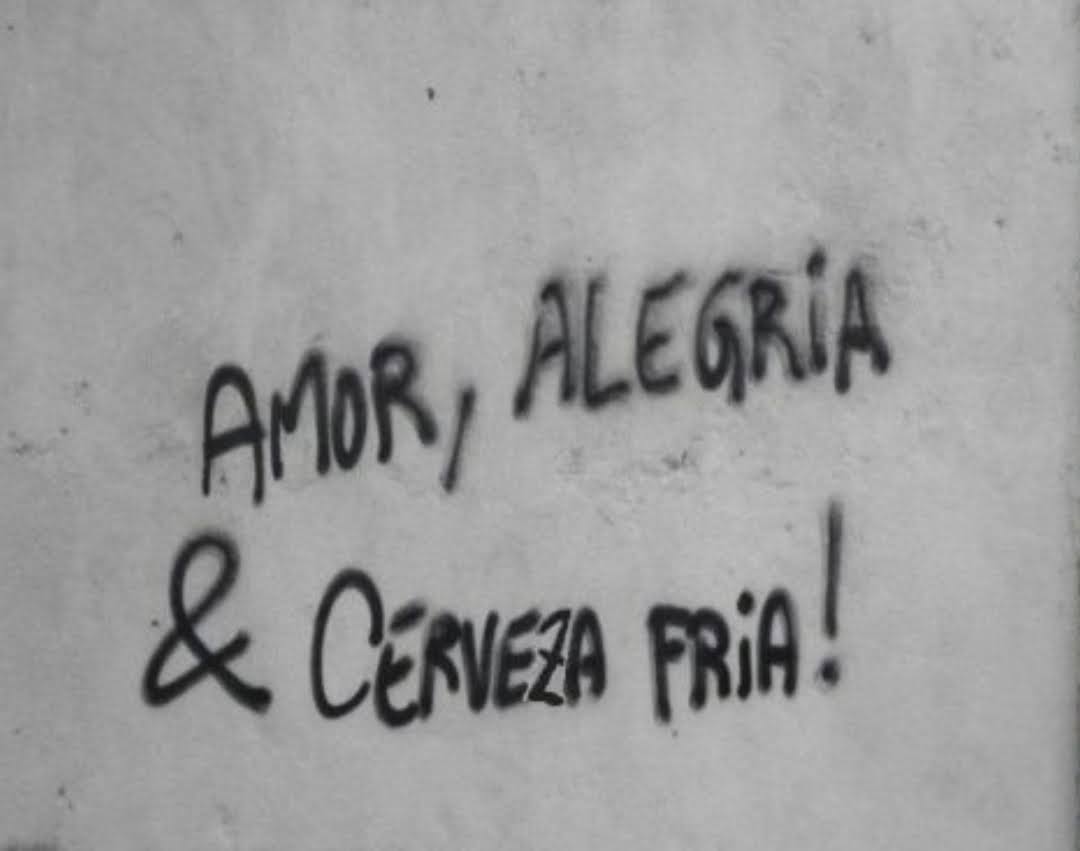 AMOR, ALEGRiA
& CERVEZA FRiA!